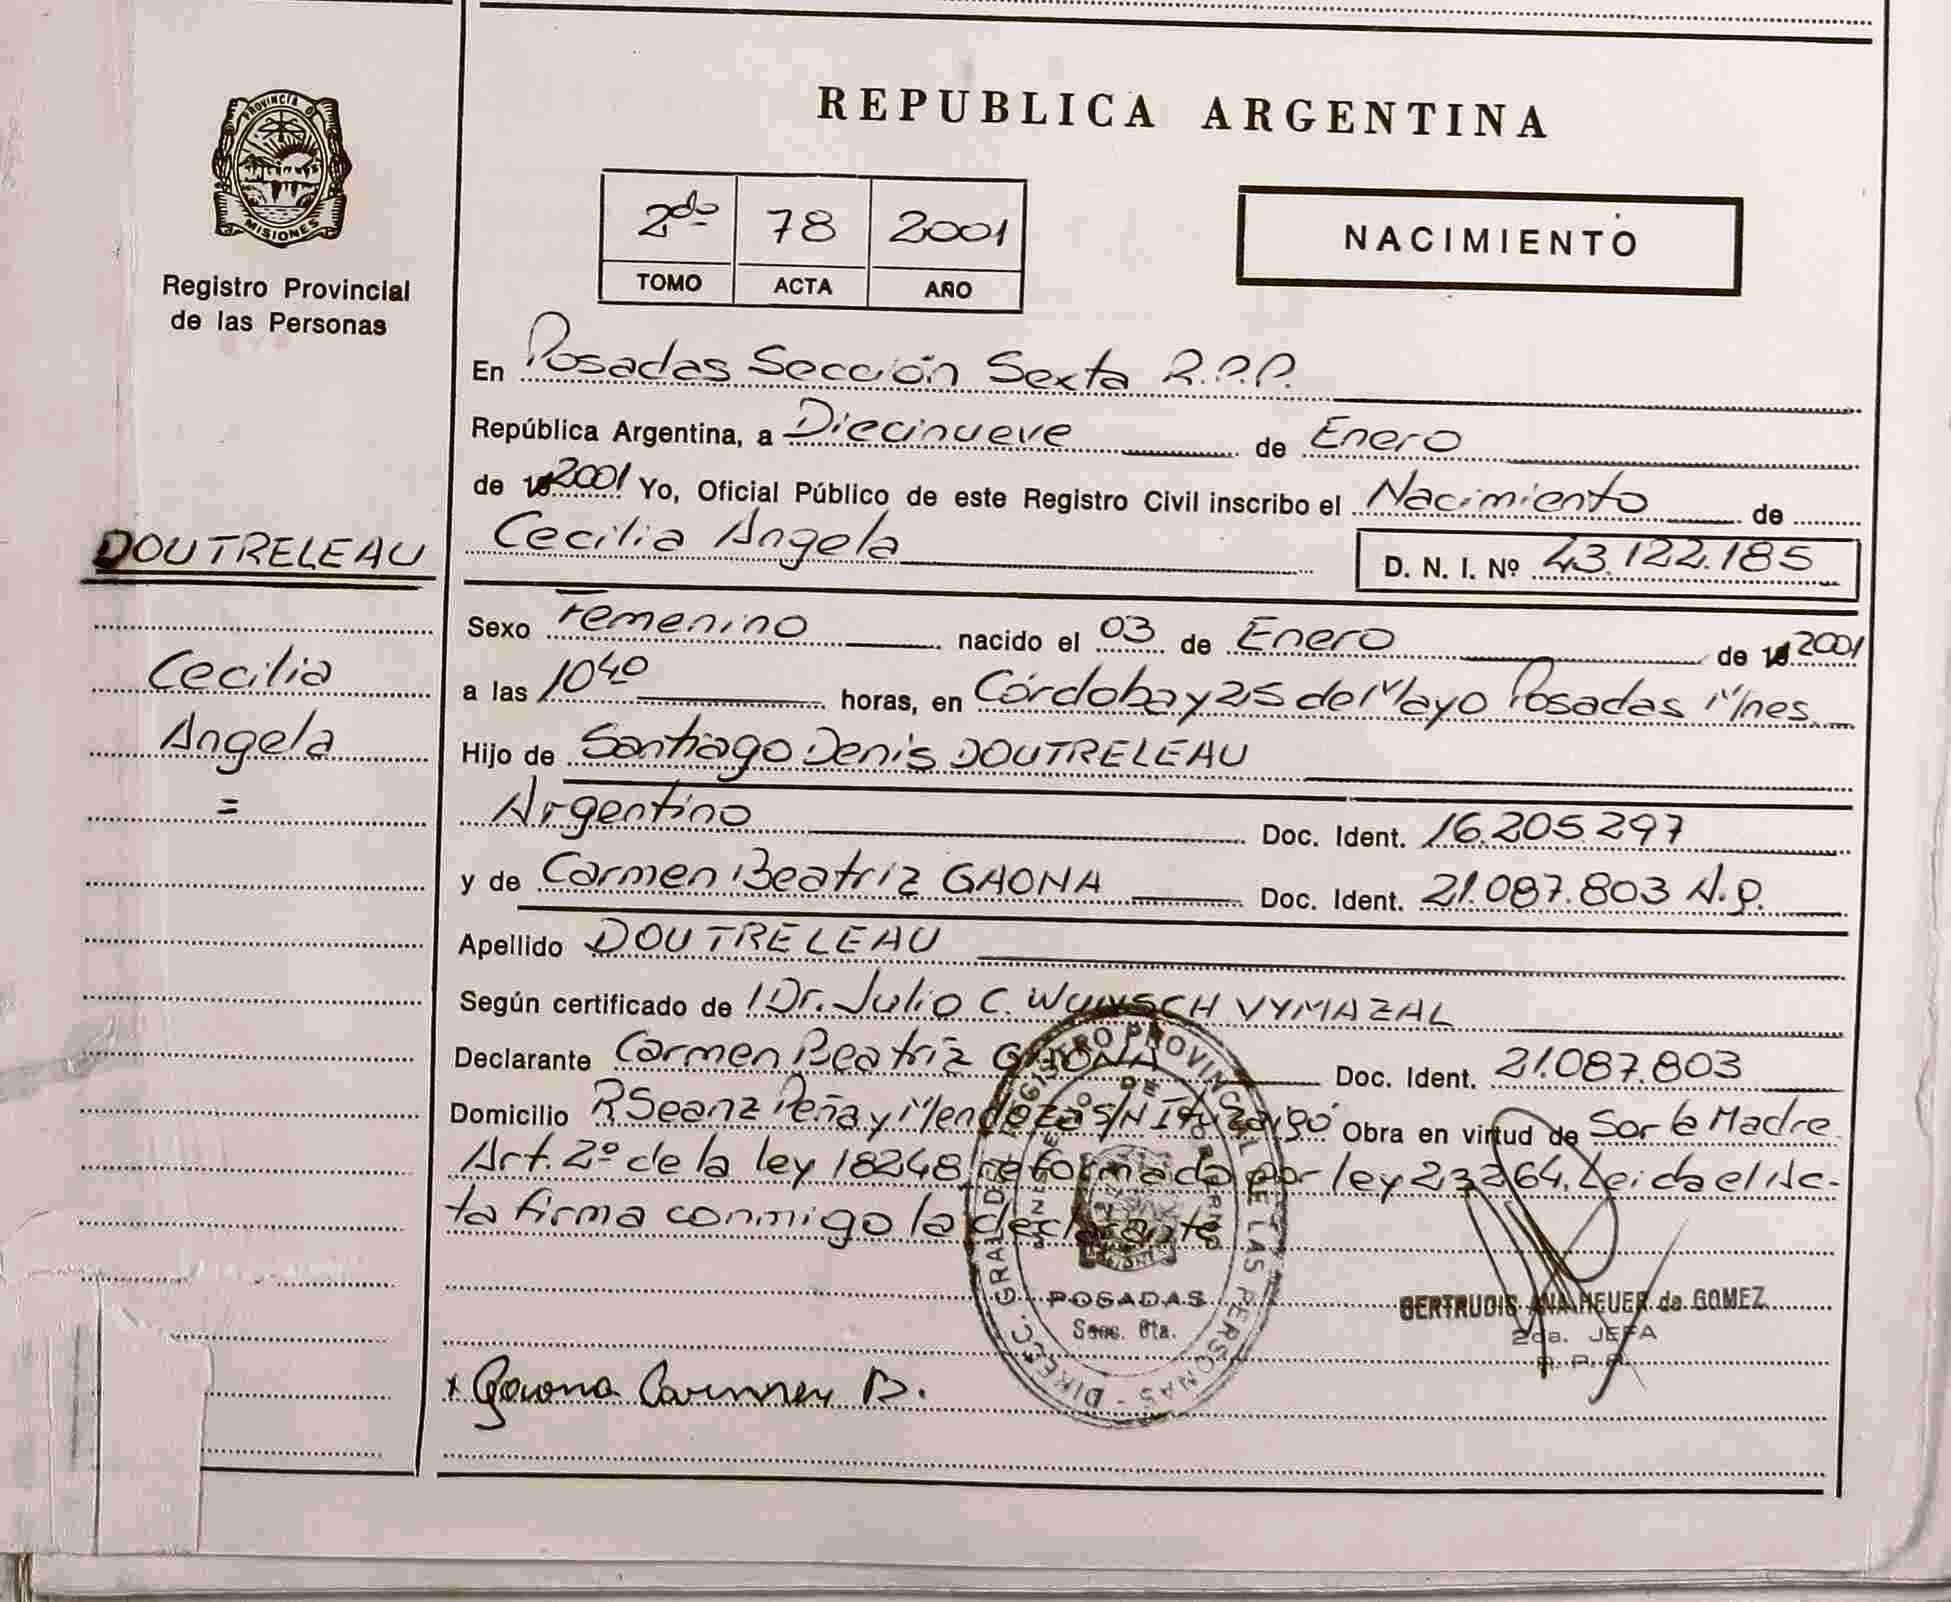 REPUBLICA ARGENTINA
PROVINCIA D
MISIONES
Registro Provincial
de las Personas
2do 78 2001
TOMO ACTA AÑO
NACIMIENTO
En Posadas Sección Sexta R.P.P.
República Argentina, a Diecinueve de Enero
de 2001 Yo, Oficial Público de este Registro Civil inscribo el Nacimiento de
Cecilia Angela D. N. I. Nº 43.122.185
DOUTRELEAU
Cecilia
Angela
=
Sexo Femenino nacido el 03 de Enero de 2001
a las 10 40 horas, en Córdoba y 25 de Mayo Posadas Mnes.
Hijo de Santiago Denis DOUTRELEAU
Argentino Doc. Ident. 16.205.297
y de Carmen Beatriz GAONA Doc. Ident. 21.087.803 A.P.
Apellido DOUTRELEAU
Según certificado de Dr. Julio C. WUNSCH VYMAZAL
Declarante Carmen Beatriz GAONA Doc. Ident. 21.087.803
Domicilio R. Seanz Peña y Mendoza S/N Ituzaigó Obra en virtud de Ser la Madre.
Art. 2º de la ley 18248 reformado por ley 23264. Leida el Ac-
ta firma conmigo la declarante
DIRECC. GRAL. DE REGISTRO PROVINCIAL DE LAS PERSONAS
POSADAS
Secc. 6ta.
GERTRUDIS ANA HEUER de GOMEZ
2da. JEFA
R. P. P.
x Gaona Carmen B.